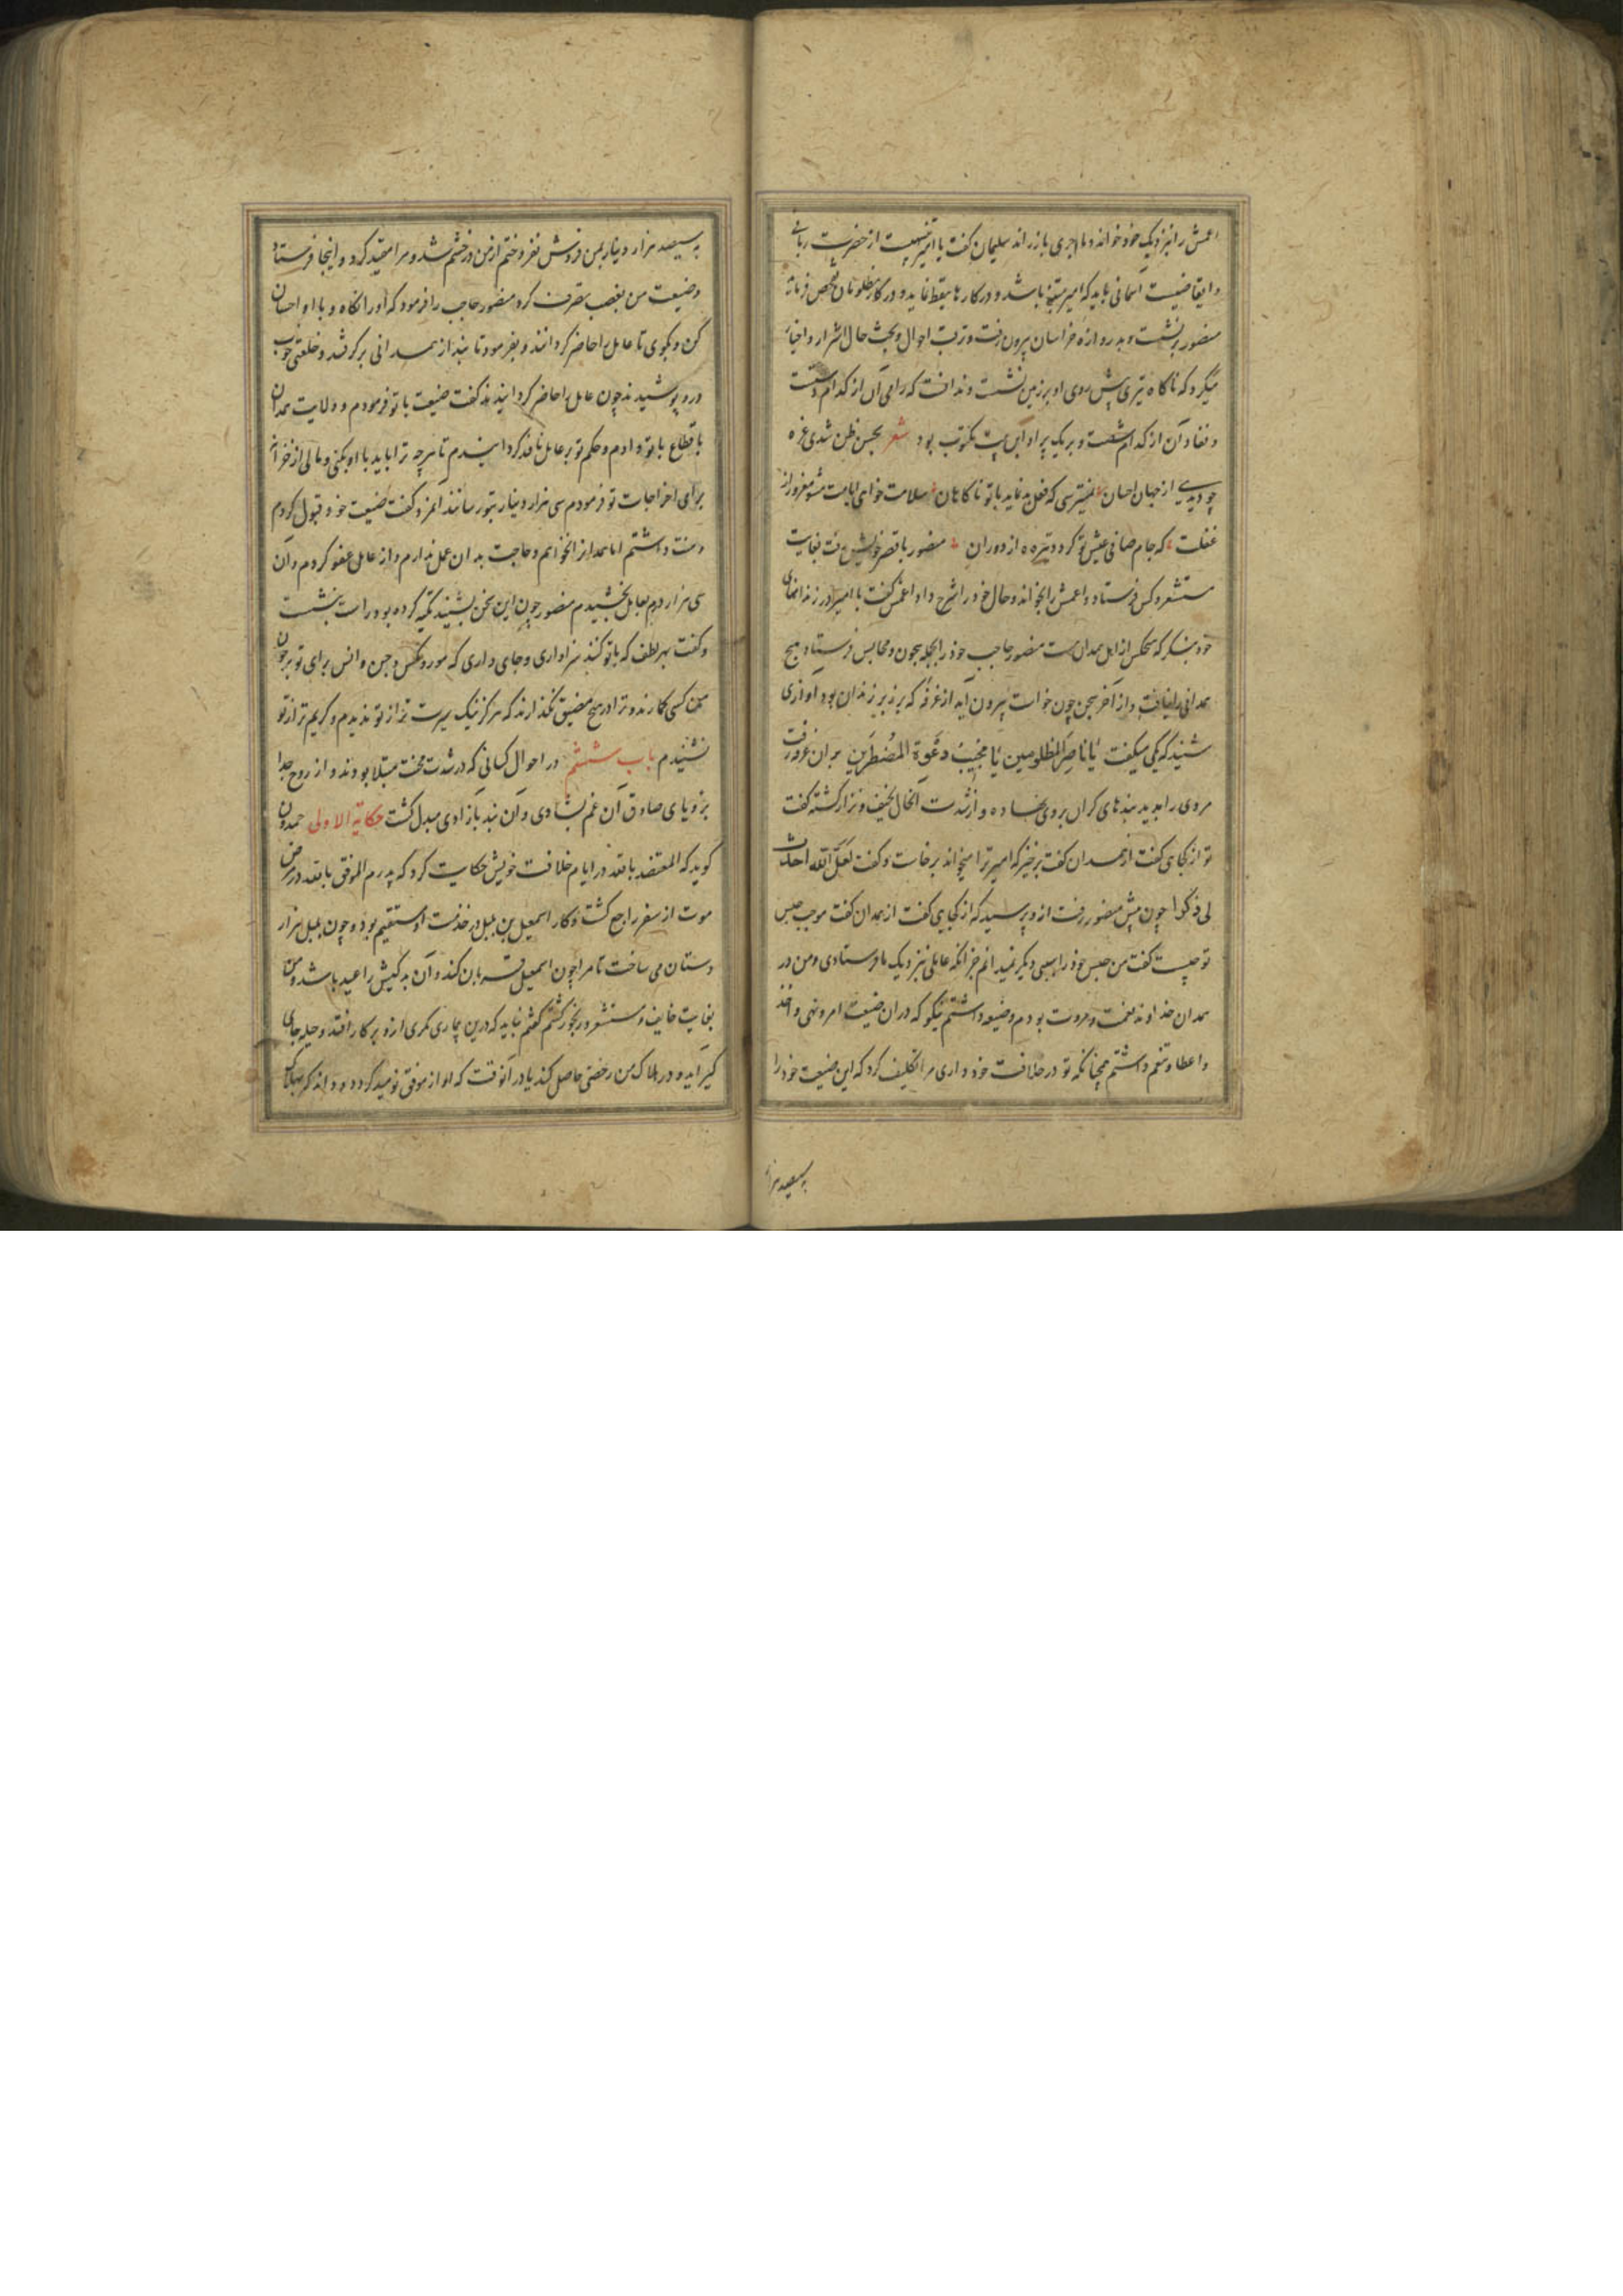 اعمش را نزدیک خود خواند و ماجری بازراند سلیمان گفت یا امیر تنبیهیست از حضرت ربانی
و ایقاضیست آسمانی باید که امیر متنبه باشد و در کارها تیقظ نماید و در کار مظلومان تفحص فرماید
منصور برنشست و بدروازه خراسان بیرون رفت و ترتیب احوال و بحث حال اشرار و اخیار
میکرد که ناکاه تیری پیش روی او بر زمین نشست و ندانست که رامی آن از کدام دست
و نفاد آن از کدام شست و بر یک پر او این بیت مکتوب بود شعر بحسن ظن شدی غره
چو دیدی از جهان احسان نمیترسی که فعل بد نماید با تو ناکاهان سلامت خواهی مشو مغرور از
غفلت که جام صافی عیش تو کردد تیره از دوران منصور با قصر خویش رفت بغایت
مستشعر و کس فرستاد و اعمش را بخواند و حال خود را شرح داد اعمش گفت یا امیر در زندانهای
خود بنکر که هیچکس از اهل همدان هست منصور حاجب خود را بجمله سجون و محابس فرستاد هیچ
همدانی را نیافت و از آخر سجن چون خواست بیرون آید از غرفه که بر زبر زندان بود آوازی
شنید که یکی میگفت یا ناصر المظلومین یا مجیب دعوة المضطرین بر آن غرفه رفت
مردی را بدید بندهای کران بر وی نهاده و از شدت آنحال نحیف و نزار کشته گفت
تو از کجایی گفت از همدان گفت برخیز که امیر ترا میخواند برخاست و گفت لعل الله احدث
لی فرجا چون پیش منصور رفت ازو پرسید که از کجایی گفت از همدان گفت موجب حبس
تو چیست گفت من حبس خود را سببی دیکر نمیدانم جز آنکه عاملی نزدیک ما فرستادی و من در
همدان خداوند نعمت و مروت بودم و ضیعه داشتم نیکو که در آن ضیعت امر و نهی و اخذ
و اعطا و تنعم داشتم همچنانکه تو در خلافت خود داری مرا تکلیف کرد که این ضیعت خود را
بسیصد هزار
به سیصد هزار دینار بمن فروش نفروختم از من در خشم شد و مرا مقید کرد و اینجا فرستاد
و ضیعت من بغصب تصرف کرد منصور حاجب را فرمود که او را نکاه دار و با او احسان
کن و بکوی تا عامل را حاضر کردانند و بفرمود تا بند از همدانی برکرفتند و خلعتی خوب
درو پوشیدند چون عامل را حاضر کردانیدند گفت ضیعت با تو فرمودم و ولایت همدان
باقطاع با تو دادم و حکم تو بر عامل نافذ کردانیدم تا هرچه ترا باید با او بکنی و مالی از خزانه
برای اخراجات تو فرمودم سی هزار دینار بتو رسانند آنمرد گفت ضیعت خود قبول کردم
و منت داشتم اما همدان را نخواهم و حاجت بدان عمل ندارم و از عامل عفو کردم و آن
سی هزار درم بعامل بخشیدم منصور چون این سخن بشنید تکیه کرده بود راست بنشست
و گفت بهر لطف که با تو کنند سزاواری و جای داری که مور و مکس و جن و انس برای تو بر چون
من کسی کمارند و ترا در هیچ مضیق نکذارند که هرکز نیک سیرت تر از تو ندیدم و کریم تر از تو
نشنیدم باب ششم در احوال کسانی که در شدت محنت مبتلا بودند و از روح جدا
برویای صادق آن غم بشادی و آن بند بآزادی مبدل کشت حکایة الاولی حمدون
کوید که المعتضد بالله در ایام خلافت خویش حکایت کرد که پدرم الموفق بالله در مرض
موت از سفر راجع کشت و کار اسمعیل بن بلبل در خدمت او مستقیم بود و چون بلبل هزار
دستان می ساخت تا مرا چون اسمعیل قربان کند و آن بدکیش را عید باشد و من
بغایت خایف و مستشعر و رنجور کشتم گفتم نباید که درین بیماری مکری ازو بر کار افتد و حیله جای
کیر آید و در هلاک من رخصتی حاصل کند یا در آنوقت که او از موفق نومید کردد و داند که بهلاک